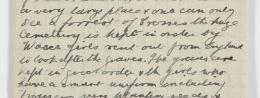 a very large place & one can only
see a forest of crosses the huge
cemetery is kept in order by
Waacs girls sent out from England
to look after the graves. The graves are
kept in good order & the girls who
have a smart uniform (including